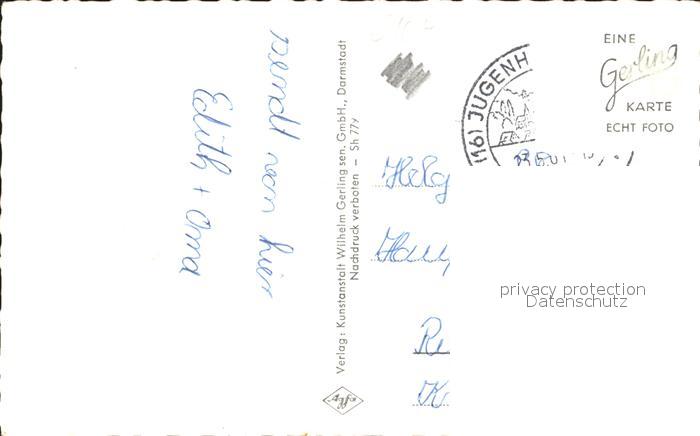 sendt von hier
Edith + Oma
Verlag: Kunstanstalt Wilhelm Gerling sen. GmbH., Darmstadt
Nachdruck verboten – Sh 779
Agfa
(16) JUGENH
EINE
Gerling
KARTE
ECHT FOTO
Helg
Hau
R
K
privacy protection
Datenschutz